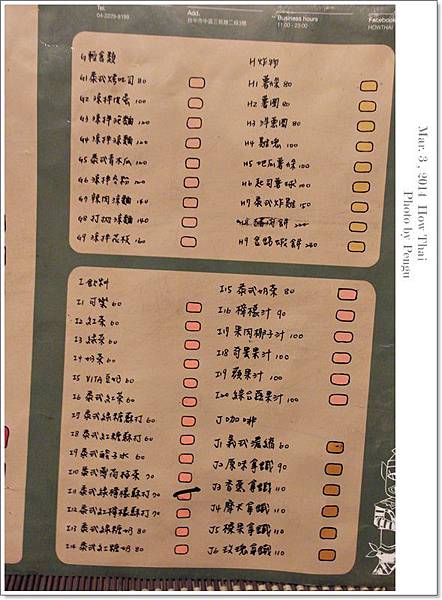 Tel.
04-2229-8199
Add.
Business hours
11:00 - 23:00
Facebook
HOWTHAI
G輕食類
G1 泰式烤吐司 80
G2 涼拌皮蛋 100
G3 涼拌 120
G4 涼拌 120
G5 泰式青木瓜 120
G6 涼拌冬粉 140
G7 辣肉涼麵 140
G8 打拋涼麵 140
G9 涼拌花枝 160
H炸物
H1 薯條 80
H2 薯圈 80
H3 洋蔥圈 80
H4 雞塊 100
H5 地瓜薯條 100
H6 起司薯球 100
H7 泰式炸雞 150
H9 月亮蝦餅 240
I飲料
I1 可樂 60
I2 紅茶 60
I3 綠茶 60
I4 奶茶 60
I5 VITA豆奶 60
I6 泰式紅茶 60
I7 泰式綠糖蘇打 60
I8 泰式紅糖蘇打 60
I9 泰式酸子水 60
I10 泰式薄荷綠茶 70
I11 泰式綠檸檬蘇打 70
I12 泰式紅檸檬蘇打 70
I13 泰式綠糖奶 80
I14 泰式紅糖奶 80
I15 泰式奶茶 80
I16 檸檬汁 90
I17 果肉椰子汁 100
I18 奇異果汁 100
I19 蘋果汁 100
I20 綜合蔬果汁 100
J咖啡
J1 義式濃縮 60
J2 原味拿鐵 90
J3 香蕉拿鐵 110
J4 摩卡拿鐵 110
J5 榛果拿鐵 110
J6 玫瑰拿鐵 110
Mar. 3, 2014 HowThai
Photo by Pengu